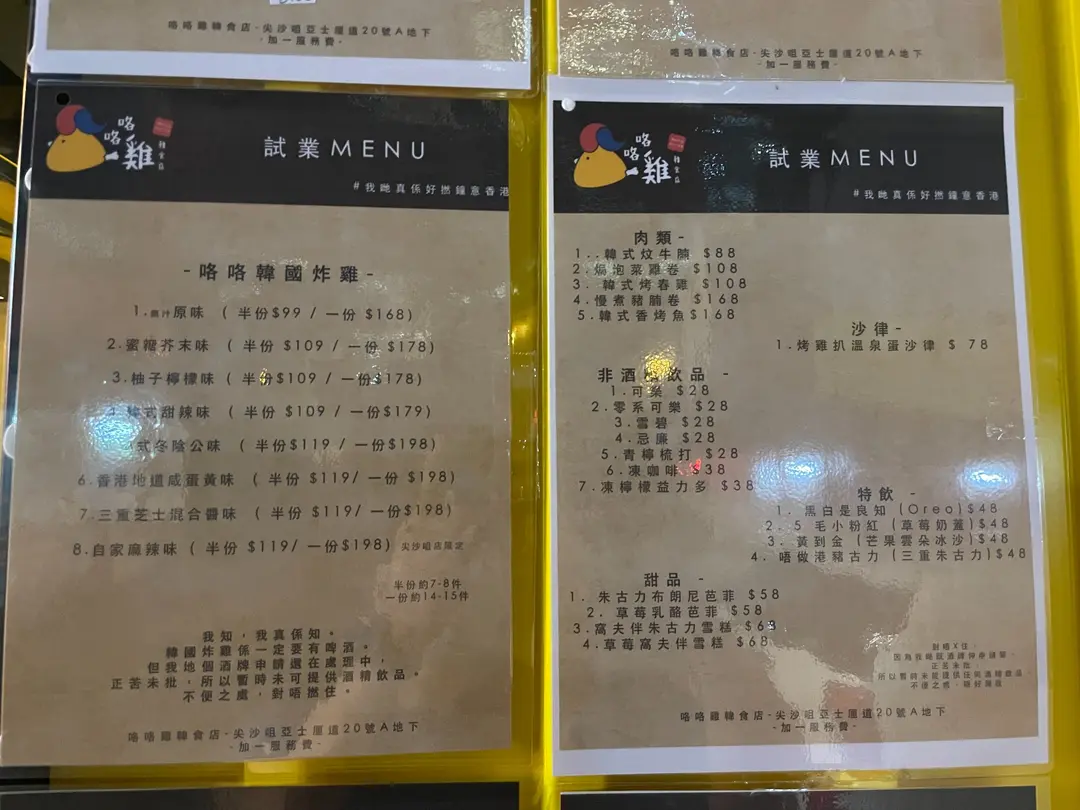 咯咯雞韓食店-尖沙咀亞士厘道20號A地下
-加一服務費-
咯咯雞韓食店-尖沙咀亞士厘道20號A地下
-加一服務費-
咯咯雞
韓食店
試業MENU
#我哋真係好撚鐘意香港
-咯咯韓國炸雞-
1.醬汁原味 ( 半份$99 / 一份 $168)
2.蜜糖芥末味 ( 半份 $109 / 一份 $178)
3.柚子檸檬味 ( 半份$109 / 一份$178)
4.韓式甜辣味 ( 半份 $109 / 一份 $179)
式冬陰公味 ( 半份$119 / 一份 $198)
6.香港地道咸蛋黃味 ( 半份 $119/ 一份 $198)
7.三重芝士混合醬味 ( 半份 $119/ 一份$198)
8.自家麻辣味 ( 半份 $119/ 一份$198) 尖沙咀店限定
半份約7-8件
一份約14-15件
我知，我真係知。
韓國炸雞係一定要有啤酒。
但我地個酒牌申請還在處理中，
正苦未批，所以暫時未可提供酒精飲品。
不便之處，對唔撚住。
咯咯雞韓食店-尖沙咀亞士厘道20號A地下
-加一服務費-
咯咯雞
韓食店
試業MENU
#我哋真係好撚鐘意香港
肉類-
1..韓式炆牛腩 $88
2.焗泡菜雞卷 $108
3. 韓式烤春雞 $108
4.慢煮豬腩卷 $168
5.韓式香烤魚$168
沙律-
1.烤雞扒溫泉蛋沙律 $ 78
非酒精飲品 -
1.可樂 $28
2.零系可樂 $28
3.雪碧 $28
4.忌廉 $28
5.青檸梳打 $28
6.凍咖啡 $38
7.凍檸檬益力多 $38
特飲 -
1. 黑白是良知 (Oreo)$48
2. 5 毛小粉紅 (草莓奶蓋)$48
3. 黃到金 (芒果雲朵冰沙)$48
4. 唔做港豬古力 (三重朱古力)$48
甜品 -
1. 朱古力布朗尼芭菲 $58
2. 草莓乳酪芭菲 $58
3.窩夫伴朱古力雪糕 $68
4.草莓窩夫伴雪糕 $68
正苦未批，
咯咯雞韓食店-尖沙咀亞士厘道20號A地下
-加一服務費-